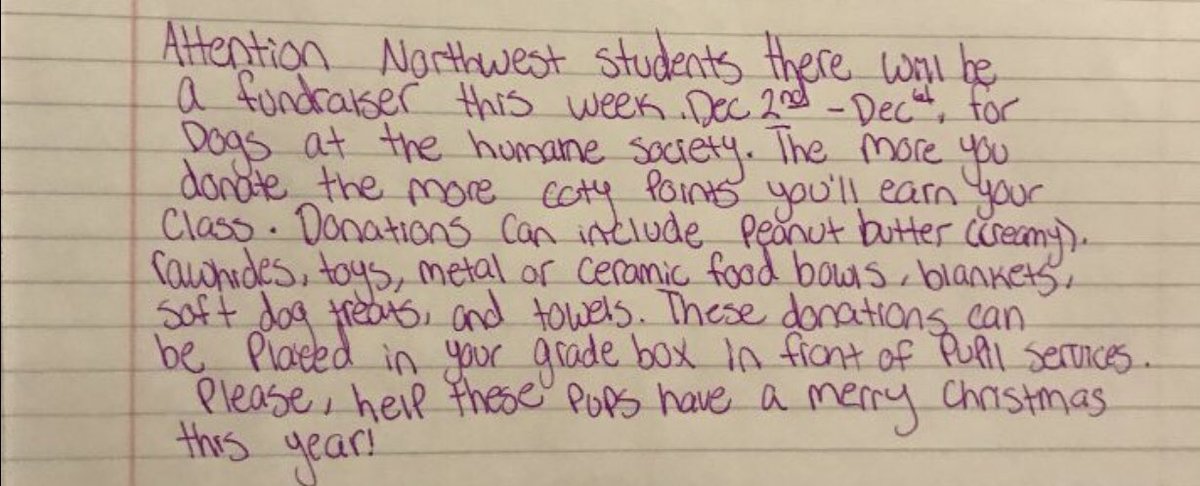 Attention Northwest students there will be
a fundraiser this week. Dec 2nd - Dec, for
Dogs at the humane society. The more you
donate the more coty Points you'll earn your
Class. Donations can include Peanut butter (creamy).
rawhides, toys, metal or ceramic food bowls, blankets,
soft dog treats, and towels. These donations can
be Placed in your grade box in front of Pupil services.
Please, help these Pups have a merry Christmas
this year!